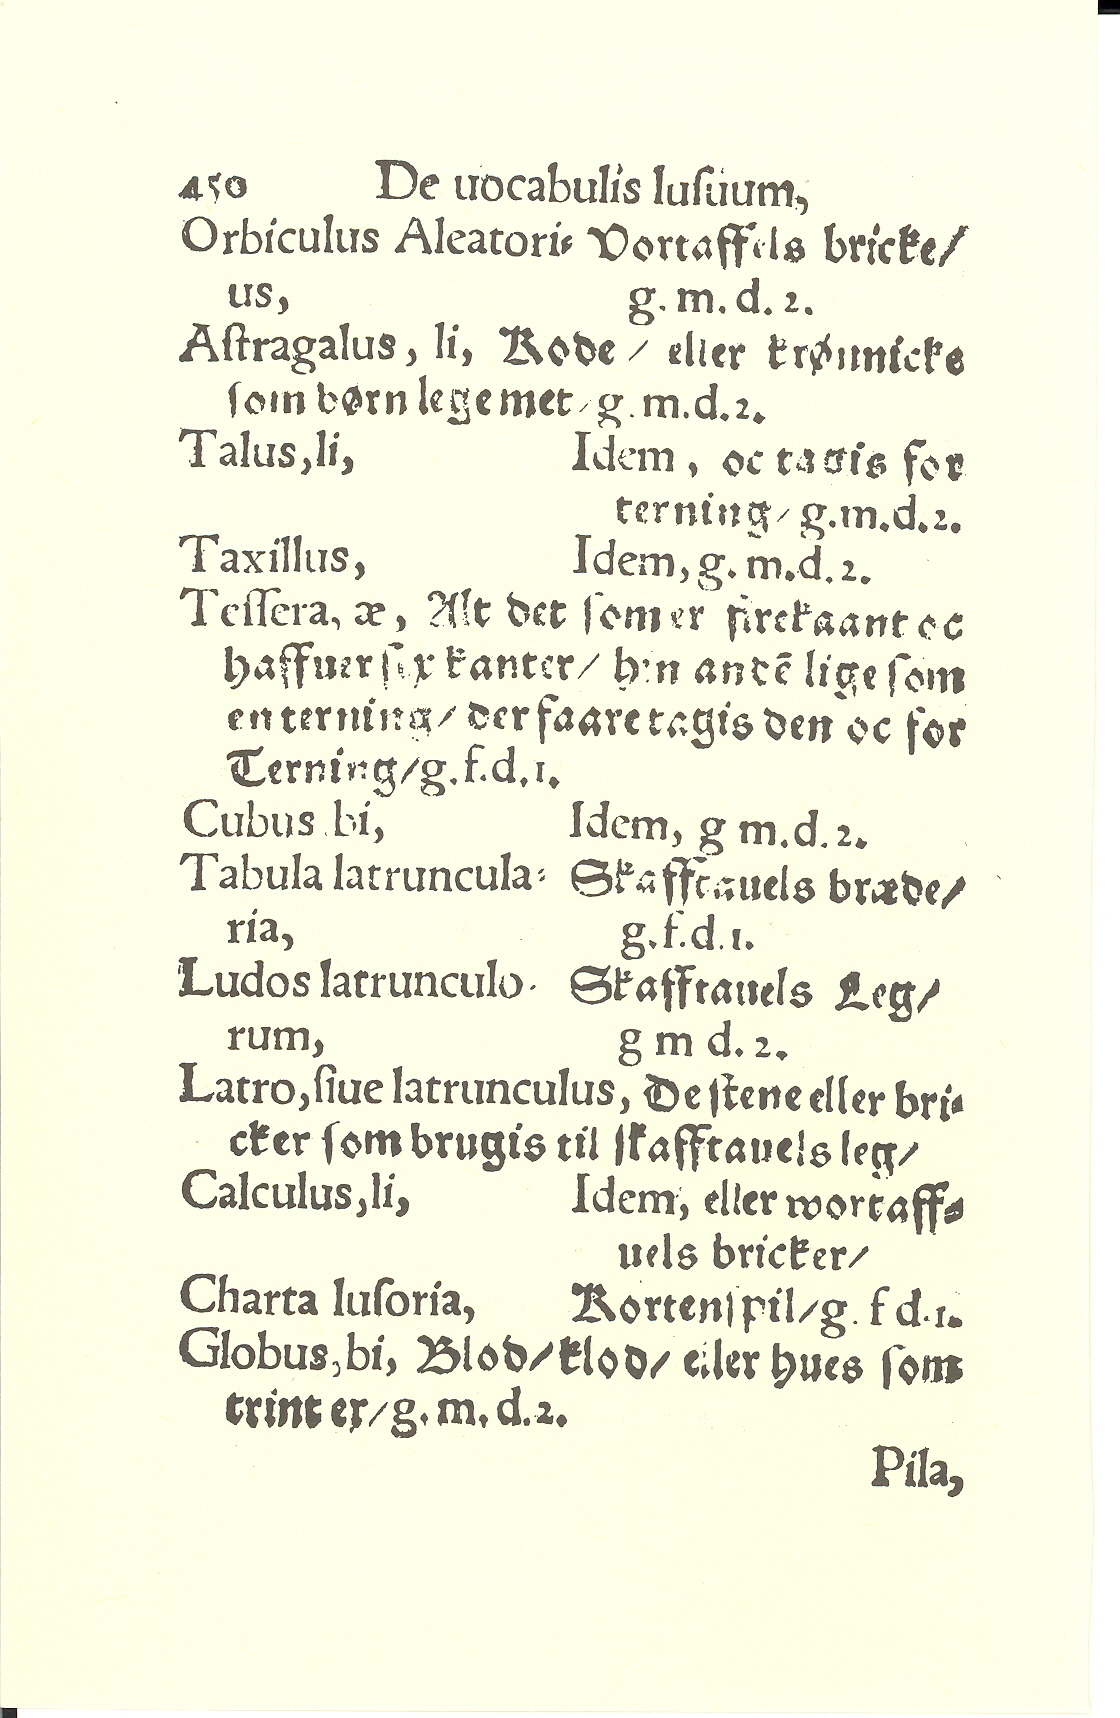 450 De uocabulis lusuum,
Orbiculus Aleatori⸗ Vortaffels bricke/
us, g. m. d. 2.
Aſtragalus, li, Kode / eller krønnicke
ſom børn lege met / g. m.d.2.
Talus,li, Idem, oc tagis for
terning/ g.m.d.2.
Taxillus, Idem, g. m.d.2.
Teſſera, æ, Alt det ſom er firekaant oc
haffuer ſex kanter/ h:n andē lige ſom
en terning/ der faare tagis den oc for
Terning/g.f.d.1.
Cubus bi, Idem, g m.d.2.
Tabula latruncula⸗ Skafftauels bræde/
ria, g.f.d.1.
Ludos latrunculo- Skafftauels Leg/
rum, g m d. 2.
Latro,ſiue latrunculus, De ſtene eller bri⸗
cker ſom brugis til ſkafftauels leg/
Calculus,li, Idem, eller wortaff⸗
uels bricker/
Charta luſoria, Kortenſpil/g. f d.1.
Globus,bi, Blod/klod/ eller hues ſom
trint er/g. m. d.2.
Pila,